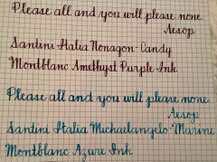 Please all and you will please none.
Aesop
Santini Italia Nonagon-Candy
Montblanc Amethyst Purple Ink
Please all and you will please none.
Aesop
Santini Italia Michaelangelo "Marine
Montblanc Azure Ink